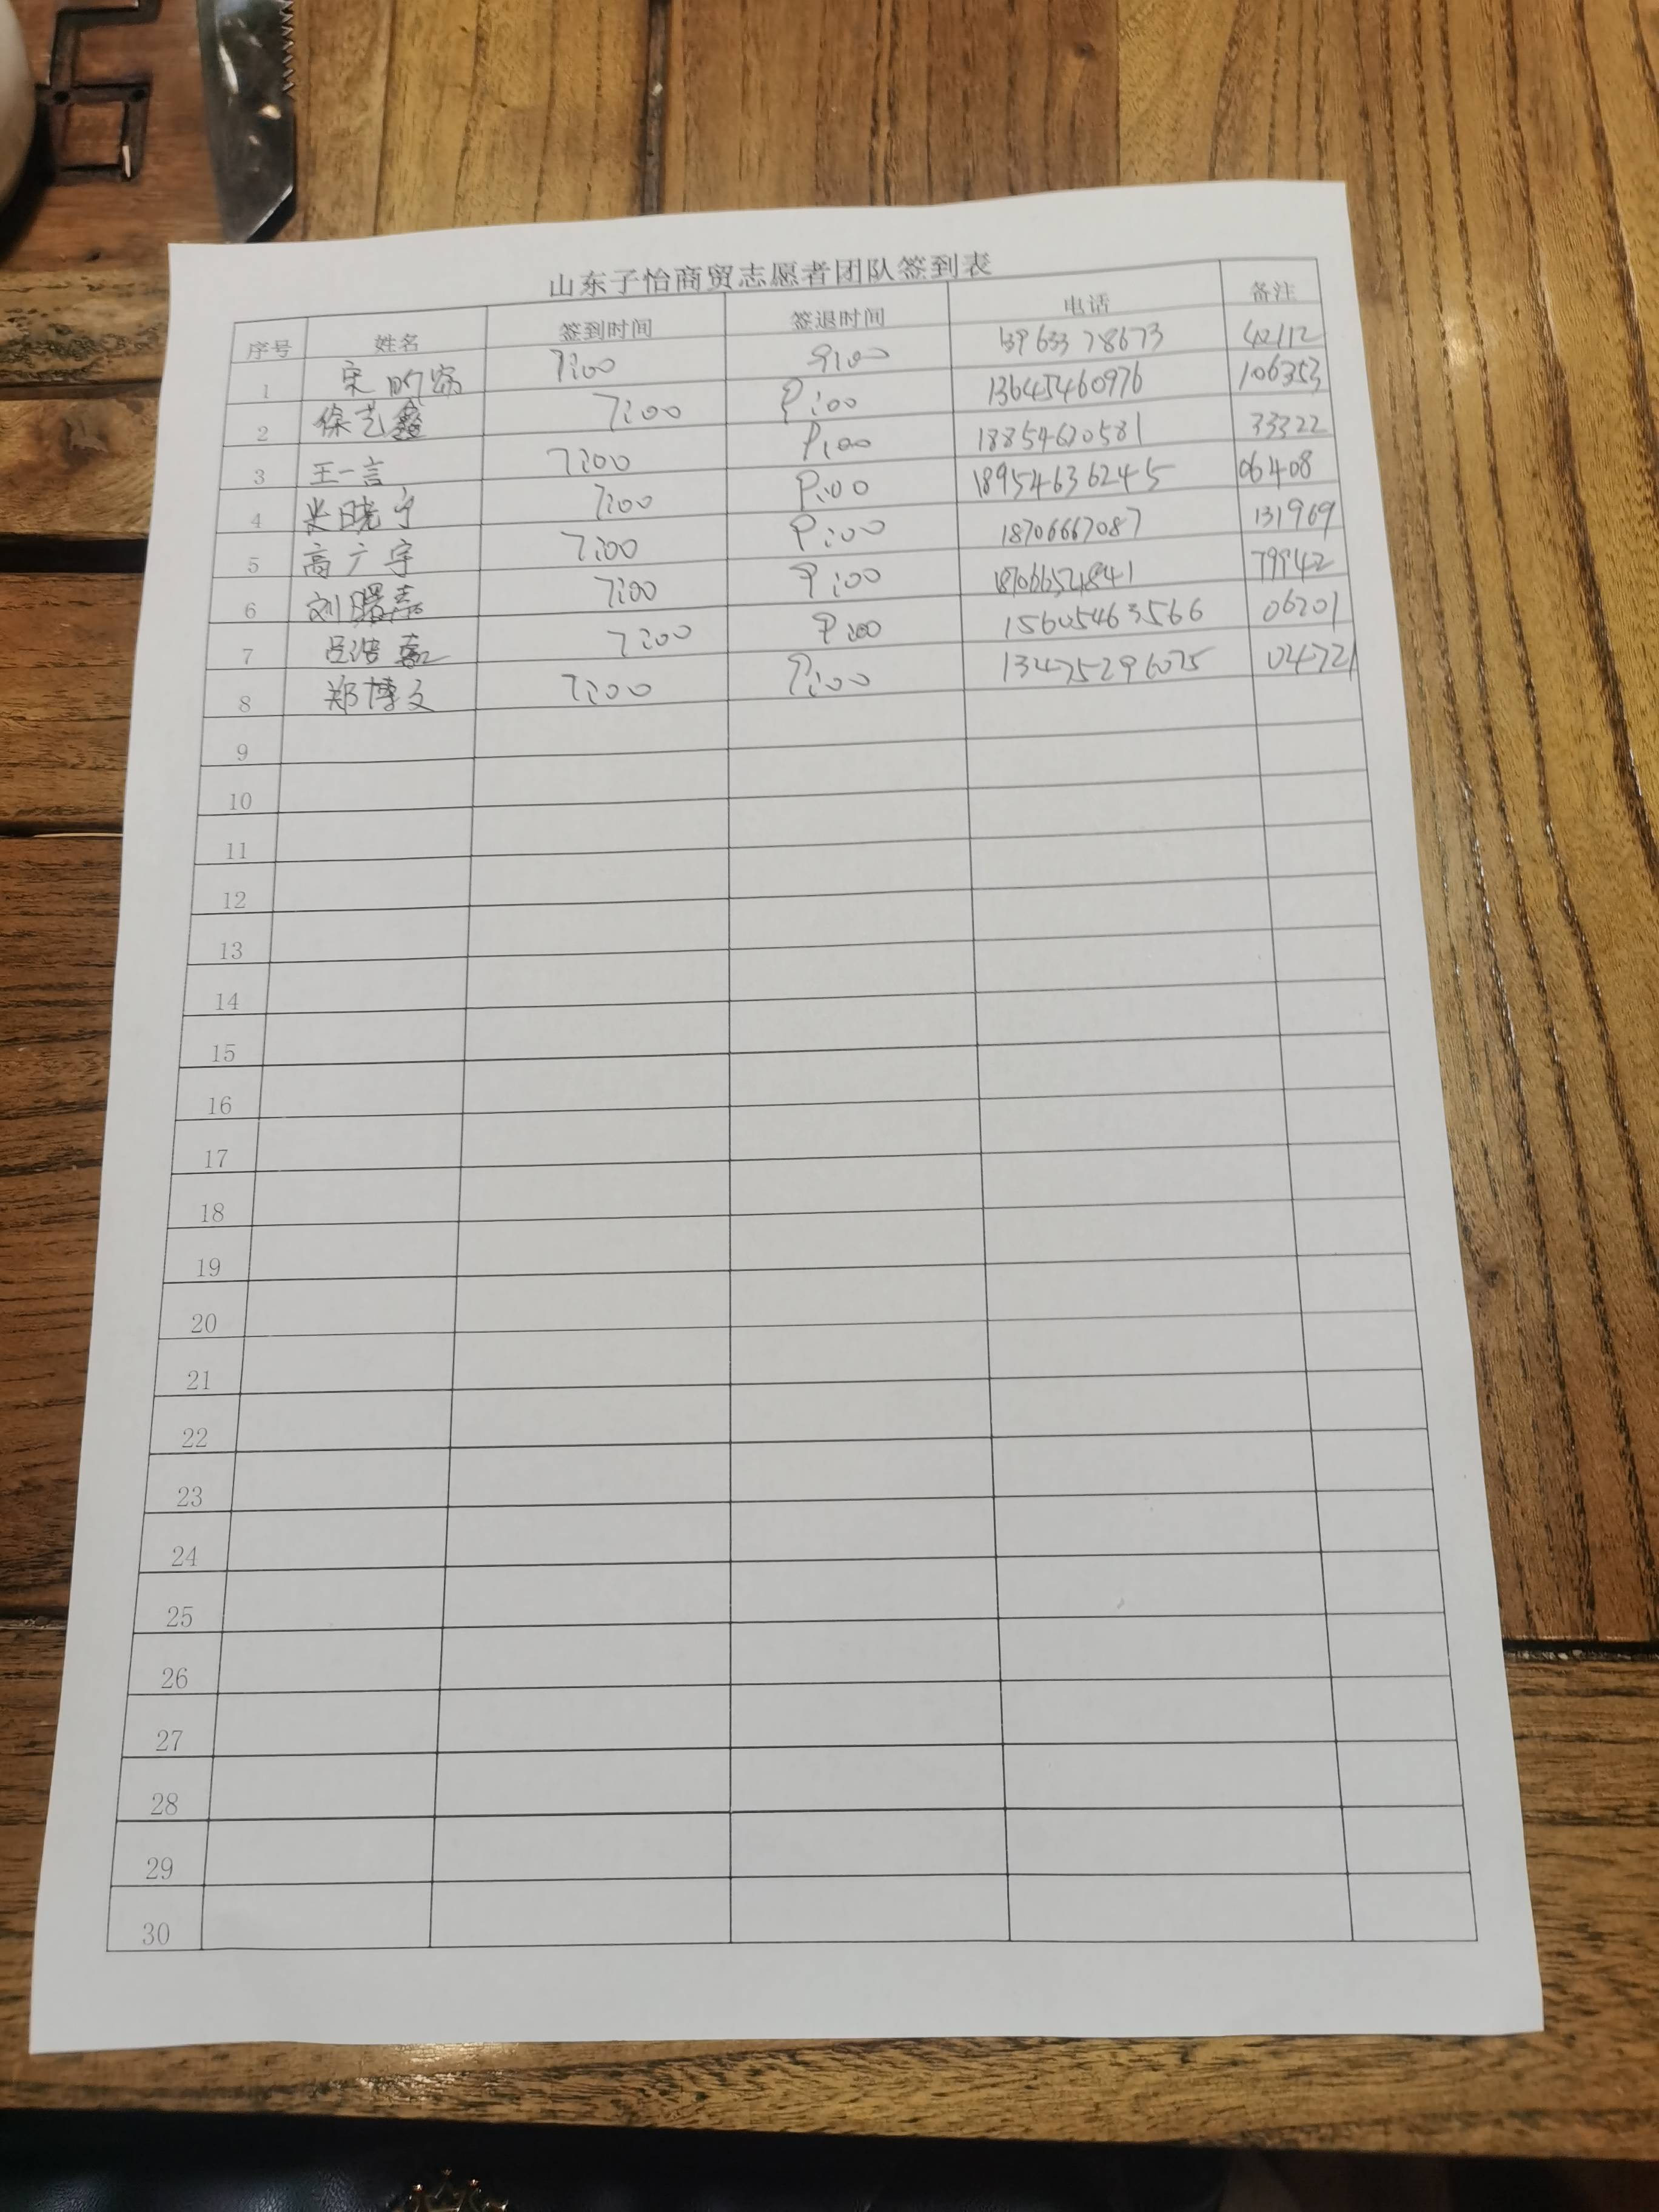 山东子怡商贸志愿者团队签到表
序号 姓名 签到时间 签退时间 电话 备注
1 宋 7:00 9:00 13963378673 42112
2 徐艺鑫 7:00 9:00 13645460976 106353
3 王一言 7:00 9:00 18854620581 33322
4 晓宁 7:00 9:00 18954636245 06408
5 高广宇 7:00 9:00 18706667087 131969
6 刘曙 7:00 9:00 18706654841 79942
7 吕浩 7:00 9:00 15605463566 06201
8 郑博文 7:00 9:00 13475296075 04721
9
10
11
12
13
14
15
16
17
18
19
20
21
22
23
24
25
26
27
28
29
30